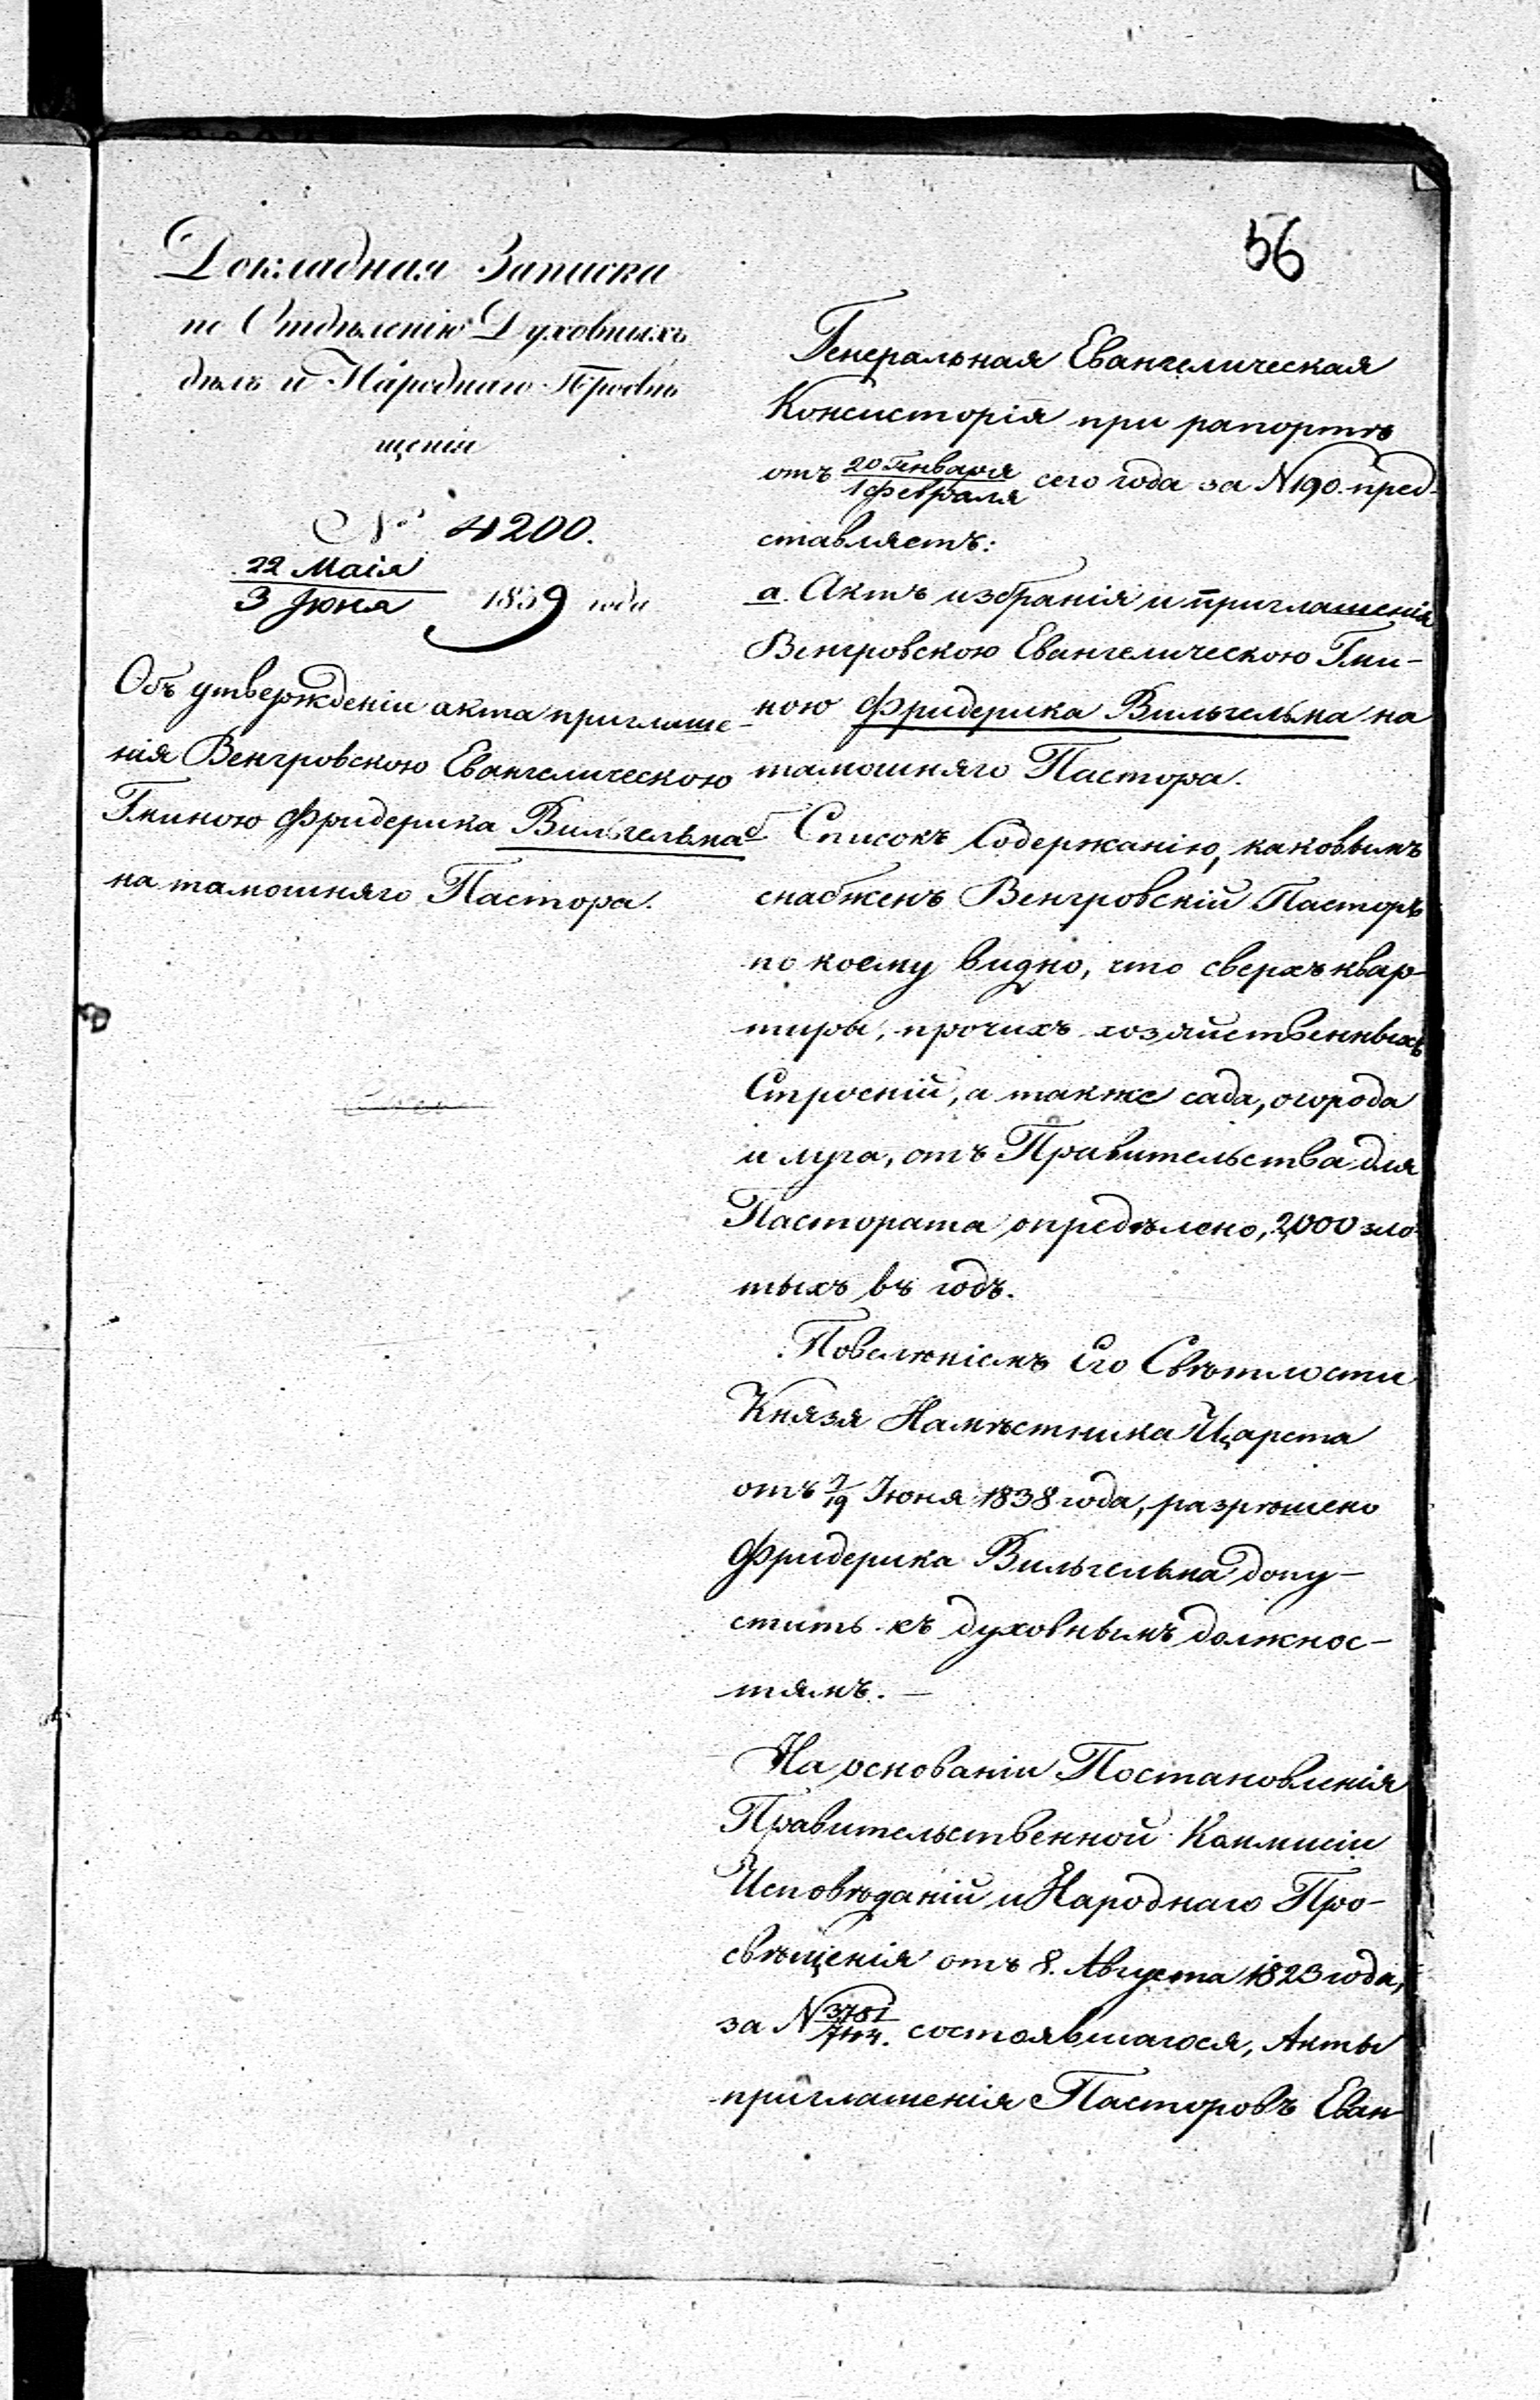 56
Докладная Записка
по Отдѣленію Духовныхъ
дѣлъ и Народнаго Просвѣ
щенія
№ 4200.
22 Маія
3 Іюня 1839 года
Объ утвержденіи акта приглаше-
нія Венгровскою Евангелическою
Гминою Фридерика Вильгельма
на тамошняго Пастора.
Генеральная Евангелическая
Консисторія при рапортѣ
отъ 20 Января
1 Февраля сего года за N 190. пред-
ставляетъ:
а. Актъ избранія и приглашенія
Венгровскою Евангелическою Гми-
ною Фридерика Вильгельма на
тамошняго Пастора.
б Списокъ Содержанію, каковымъ
снабженъ Венгровскій Пасторъ
по коему видно, что сверхъ квар-
тиры, прочихъ хозяйственныхъ
Строеній, а также сада, огорода
и луга, отъ Правительства для
Пастората опредѣлено, 2,000 зло-
тыхъ въ годъ.
Повелѣніемъ Его Свѣтлости
Князя Намѣстника Царста
отъ 7/19 Іюня 1838 года, разрѣшено
Фридерика Вильгельма допу-
стить къ духовнымъ должнос-
тямъ. —
На основаніи Постановленія
Правительственной Коммисіи
Исповѣданій и Народнаго Про-
свѣщенія отъ 8. Августа 1823 года,
за N 3781/744. состоявшагося, Акты
приглашенія Пасторовъ Еван-